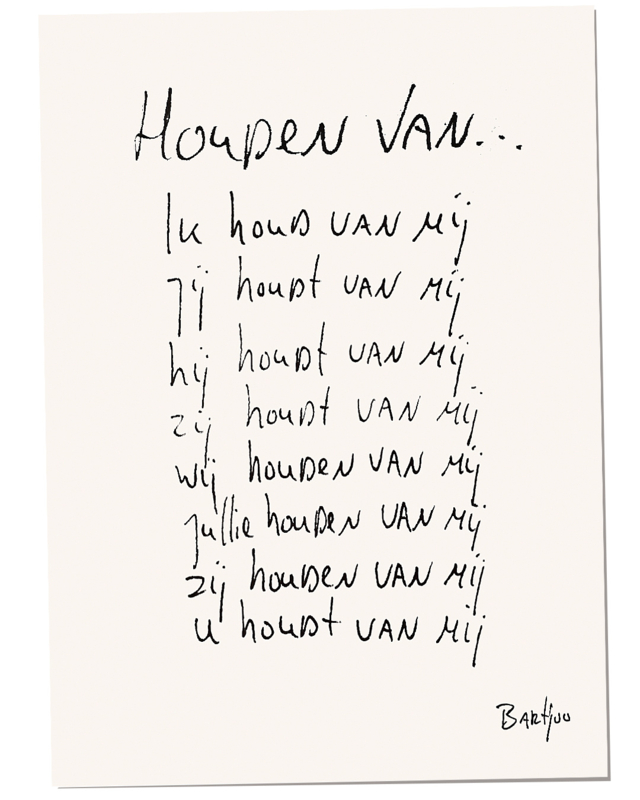 Houden van...
Ik houd van mij
jij houdt van mij
hij houdt van mij
zij houdt van mij
wij houden van mij
jullie houden van mij
zij houden van mij
u houdt van mij